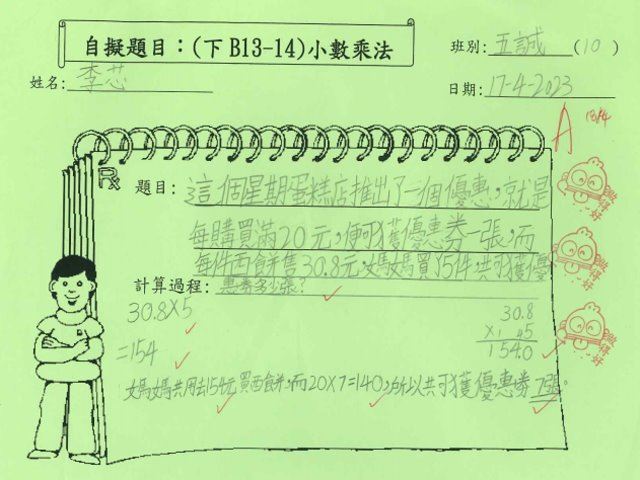 自擬題目：(下 B13-14)小數乘法
班別: 五誠 (10)
姓名: 李芯
日期: 17-4-2023
A 18/4
題目: 這個星期蛋糕店推出了一個優惠,就是
每購買滿20元,便可獲優惠券一張,而
每件西餅售30.8元,媽媽買了5件,共可獲優
計算過程: 惠券多少張?
30.8×5
=154
30.8
× 5
154.0
媽媽共用去154元買西餅,而20×7=140,所以共可獲優惠券7張。
做得好
做得好
做得好